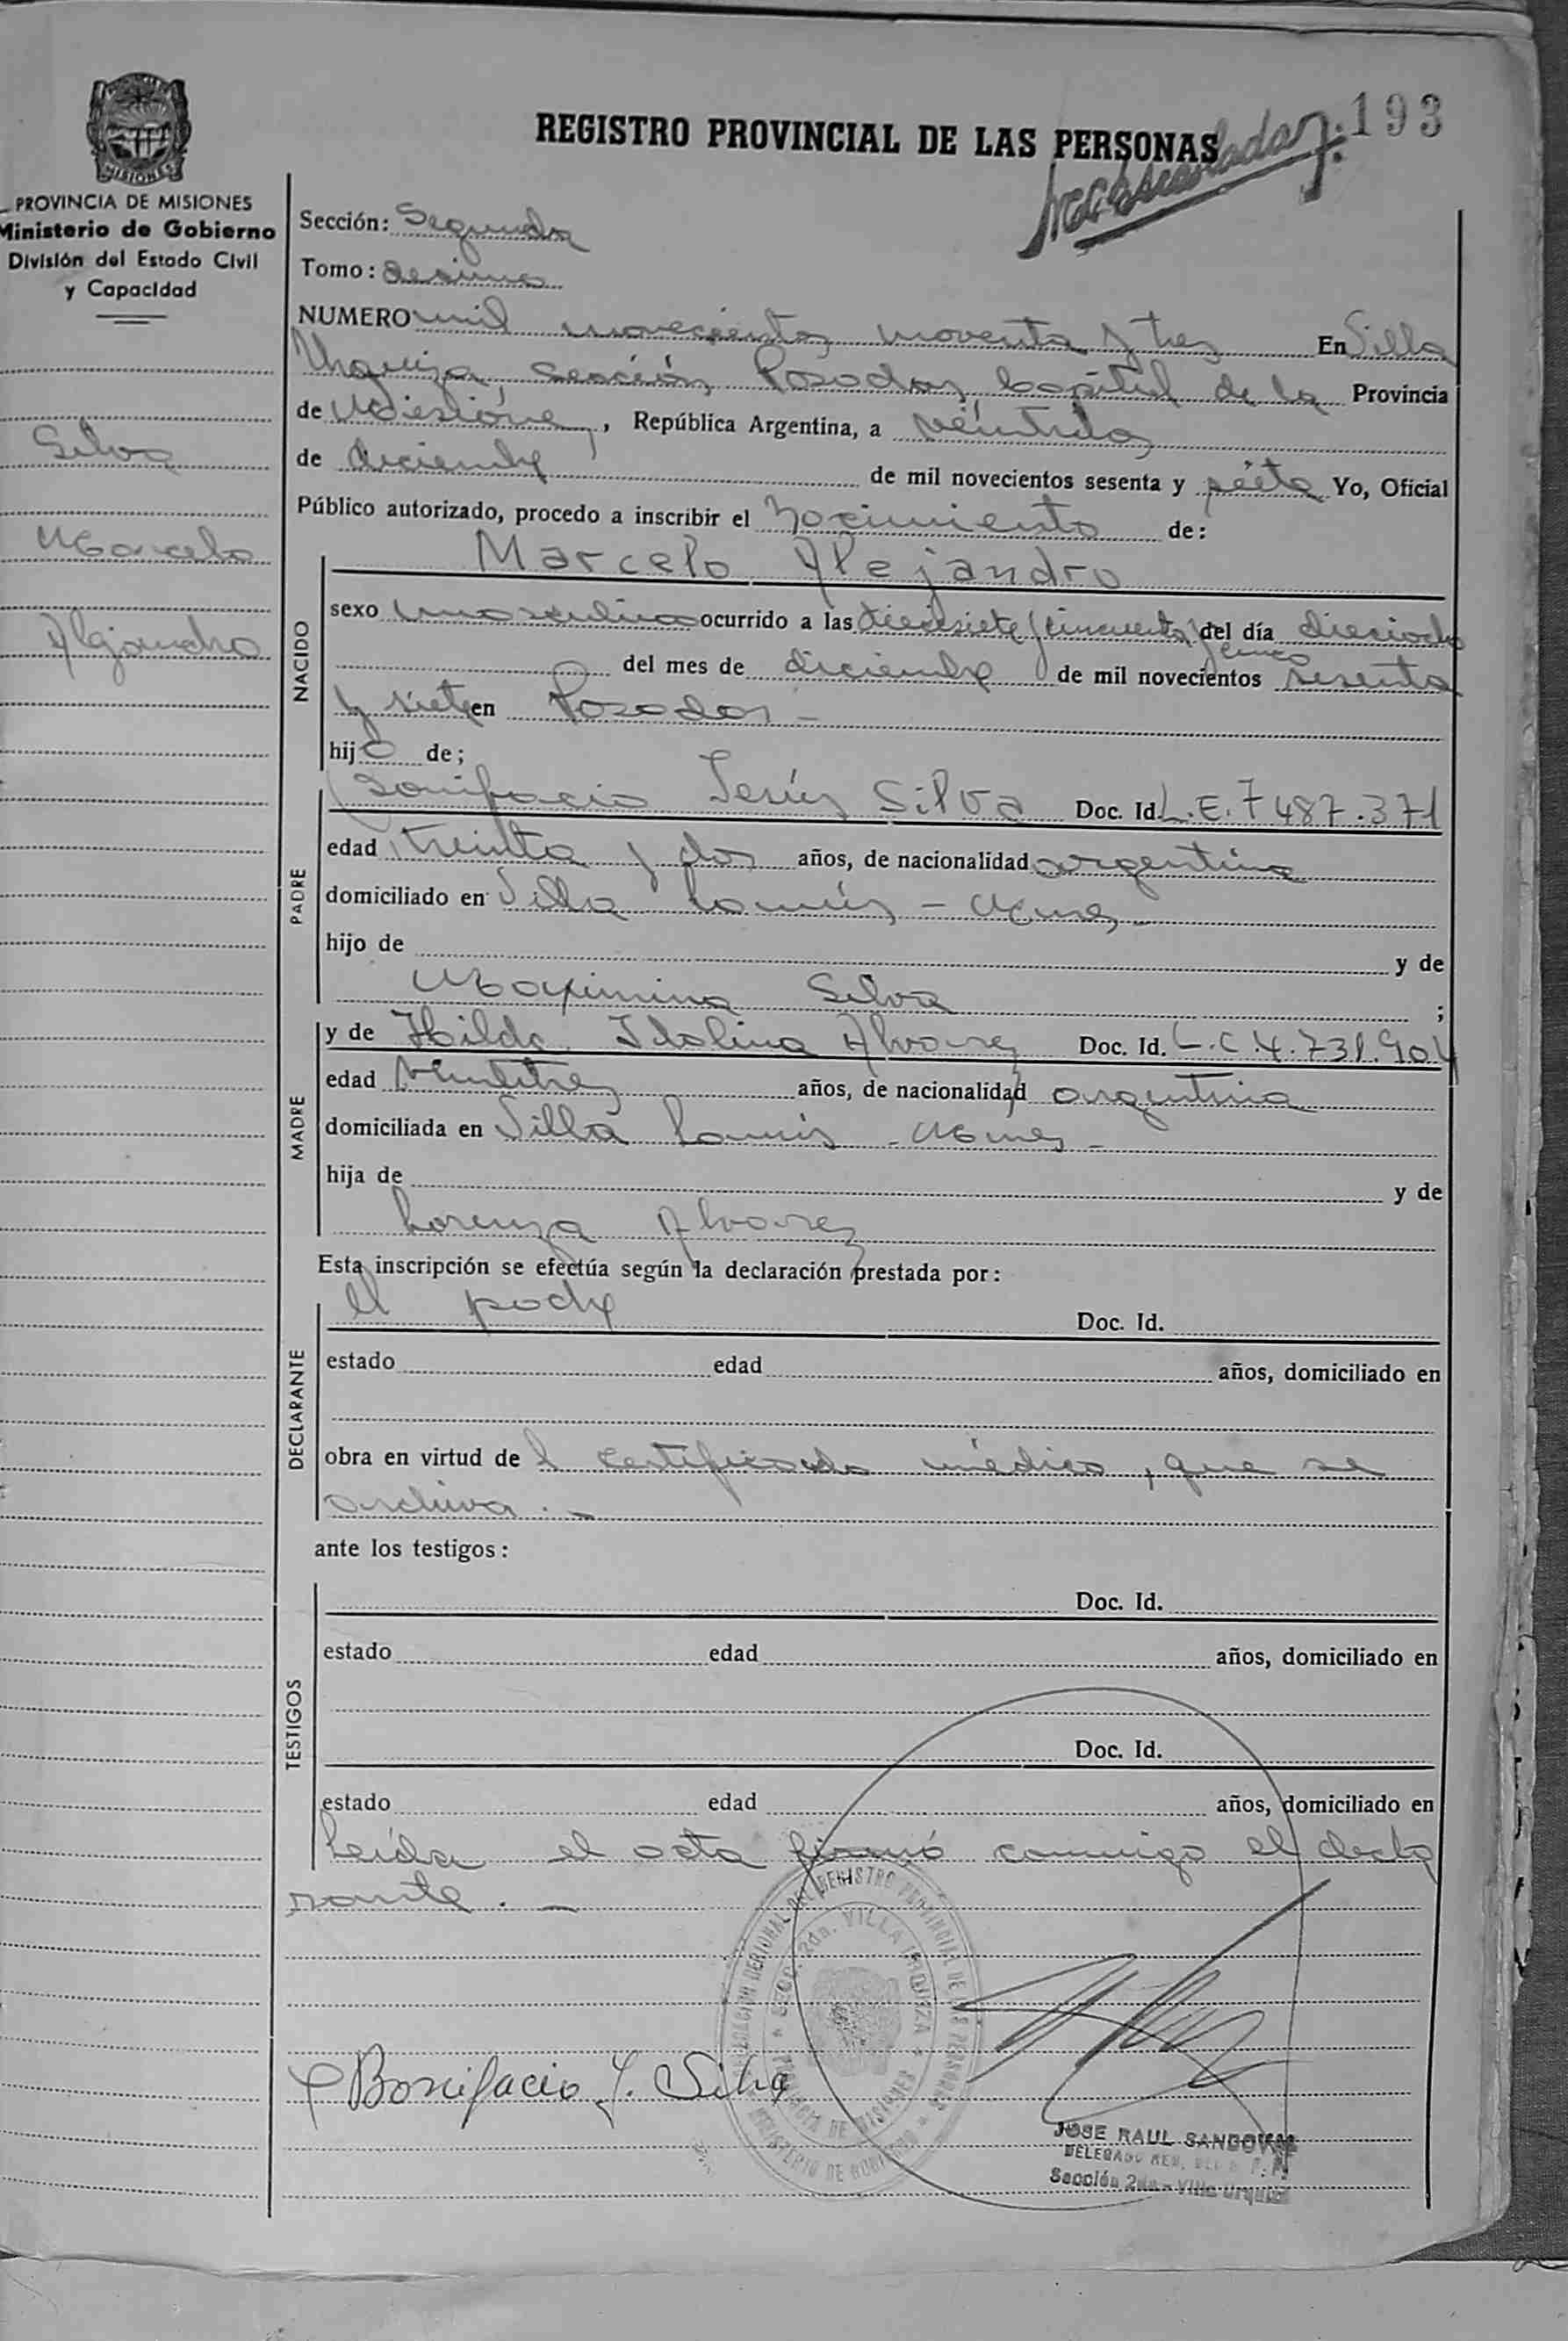 193
REGISTRO PROVINCIAL DE LAS PERSONAS
MISIONES
PROVINCIA DE MISIONES
Ministerio de Gobierno
División del Estado Civil
y Capacidad
Silva
Marcelo
Alejandro
Sección: Segunda
Tomo: Decimo
NUMERO mil novecientos noventa y tres En Villa
Urquiza, sección, Posadas, Capital de la Provincia
de Misiones, República Argentina, a veintidos
de diciembre de mil novecientos sesenta y siete Yo, Oficial
Público autorizado, procedo a inscribir el nacimiento de:
Marcelo Alejandro
NACIDO
sexo masculino ocurrido a las diecisiete / cincuenta y cinco del día dieciocho
del mes de diciembre de mil novecientos sesenta
y siete en Posadas -
hijo de;
PADRE
Bonifacio Jesús Silva Doc. Id. L.E. 7487.371
edad treinta y dos años, de nacionalidad argentina
domiciliado en Villa Lanús -
hijo de y de
Maximina Silva ;
MADRE
y de Hilda Idolina Alvarez Doc. Id. L.C.4.731.904
edad veintitres años, de nacionalidad argentina
domiciliada en Villa Lanús -
hija de y de
Lorenza Alvarez
Esta inscripción se efectúa según la declaración prestada por:
DECLARANTE
El padre Doc. Id.
estado edad años, domiciliado en
obra en virtud del certificado médico, que se
archiva. -
ante los testigos:
TESTIGOS
Doc. Id.
estado edad años, domiciliado en
Doc. Id.
estado edad años, domiciliado en
Leída el acta firmó conmigo el decla
rante. -
DELEGACION REGIONAL DEL REGISTRO PROVINCIAL DE LAS PERSONAS
Secc. 2da. VILLA URQUIZA
PROVINCIA DE MISIONES
MINISTERIO DE GOBIERNO
Bonifacio J. Silva
JOSE RAUL SANDOVAL
DELEGADO REG. DEL R. P. P.
Sección 2da. - Villa Urquiza